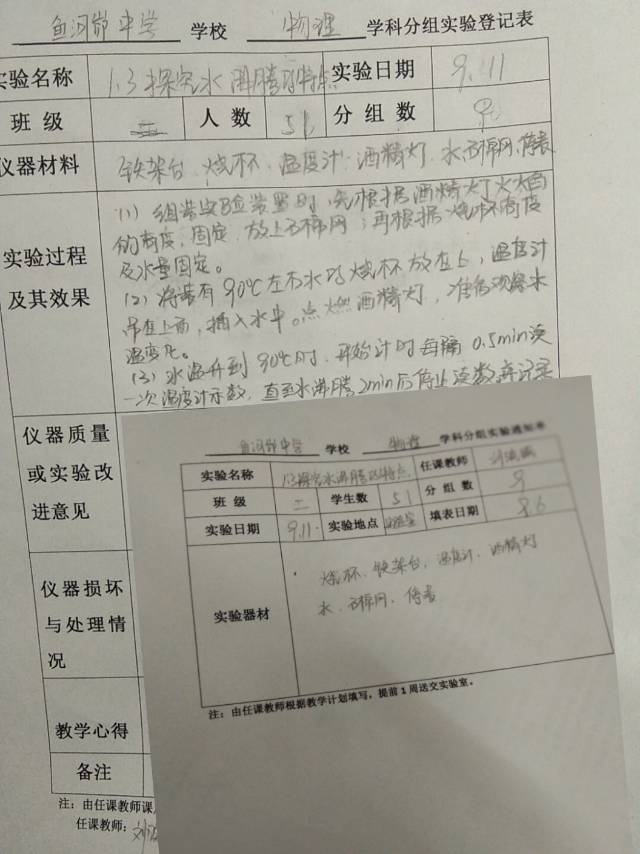 鱼河峁中学 学校 物理 学科分组实验登记表
实验名称 1.3探究水沸腾的特点 实验日期 9.11
班级 二 人数 51 分组数 9
仪器材料 铁架台、烧杯、温度计、酒精灯、水、石棉网、停表
实验过程及其效果
(1) 组装实验装置时,先根据酒精灯火焰
的高度,固定,放上石棉网;再根据烧杯高度
及水量固定。
(2) 将装有90℃左右水的烧杯放在上,温度计
吊在上面,插入水中。点燃酒精灯,准备观察水
温变化。
(3) 水温升到90℃时,开始计时每隔0.5min读
一次温度计示数,直至水沸腾2min后停止读数并记录
仪器质量或实验改进意见
仪器损坏与处理情况
教学心得
备注
注:由任课教师课
任课教师:
鱼河峁中学 学校 物理 学科分组实验通知单
实验名称 1.3探究水沸腾的特点 任课教师
班级 二 学生数 51 分组数 9
实验日期 9.11. 实验地点 实验室 填表日期 9.6
实验器材
烧杯、铁架台、温度计、酒精灯
水、石棉网、停表
注:由任课教师根据教学计划填写,提前1周送交实验室。